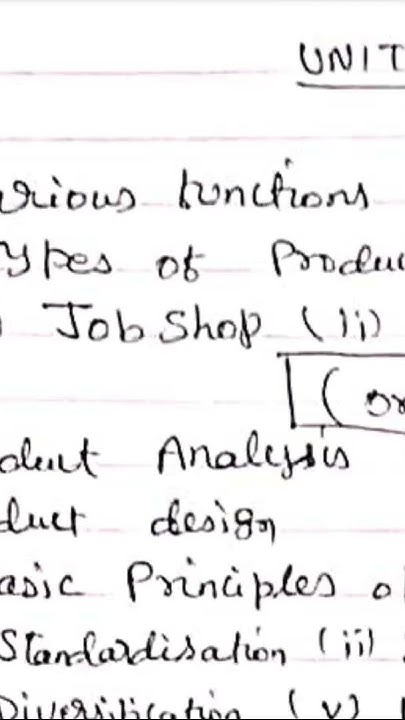 UNIT
arious functions
ypes of Produc
Job Shop (ii)
(or
oduct Analysis
duct design
asic Principles o
Standardisation (ii)
Diversification (v)